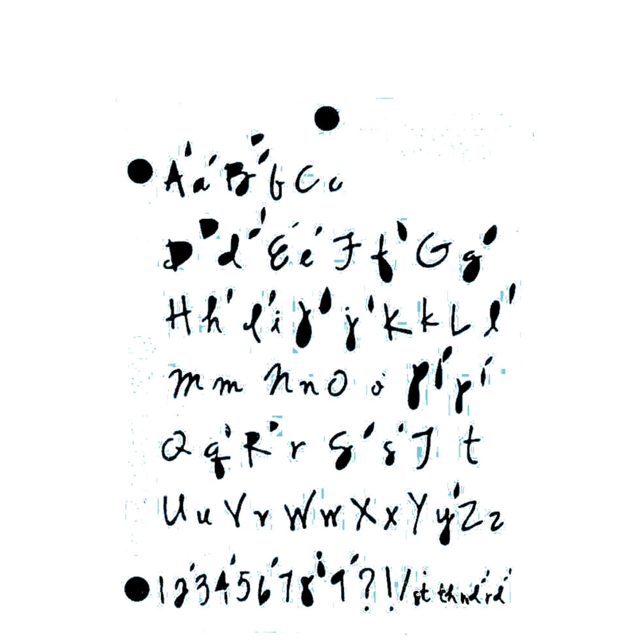 A a B b C c
D d E e F f G g
H h I i J j K k L l
M m N n O o P p
Q q R r S s T t
U u V v W w X x Y y Z z
1 2 3 4 5 6 7 8 9 ? ! / st th nd rd